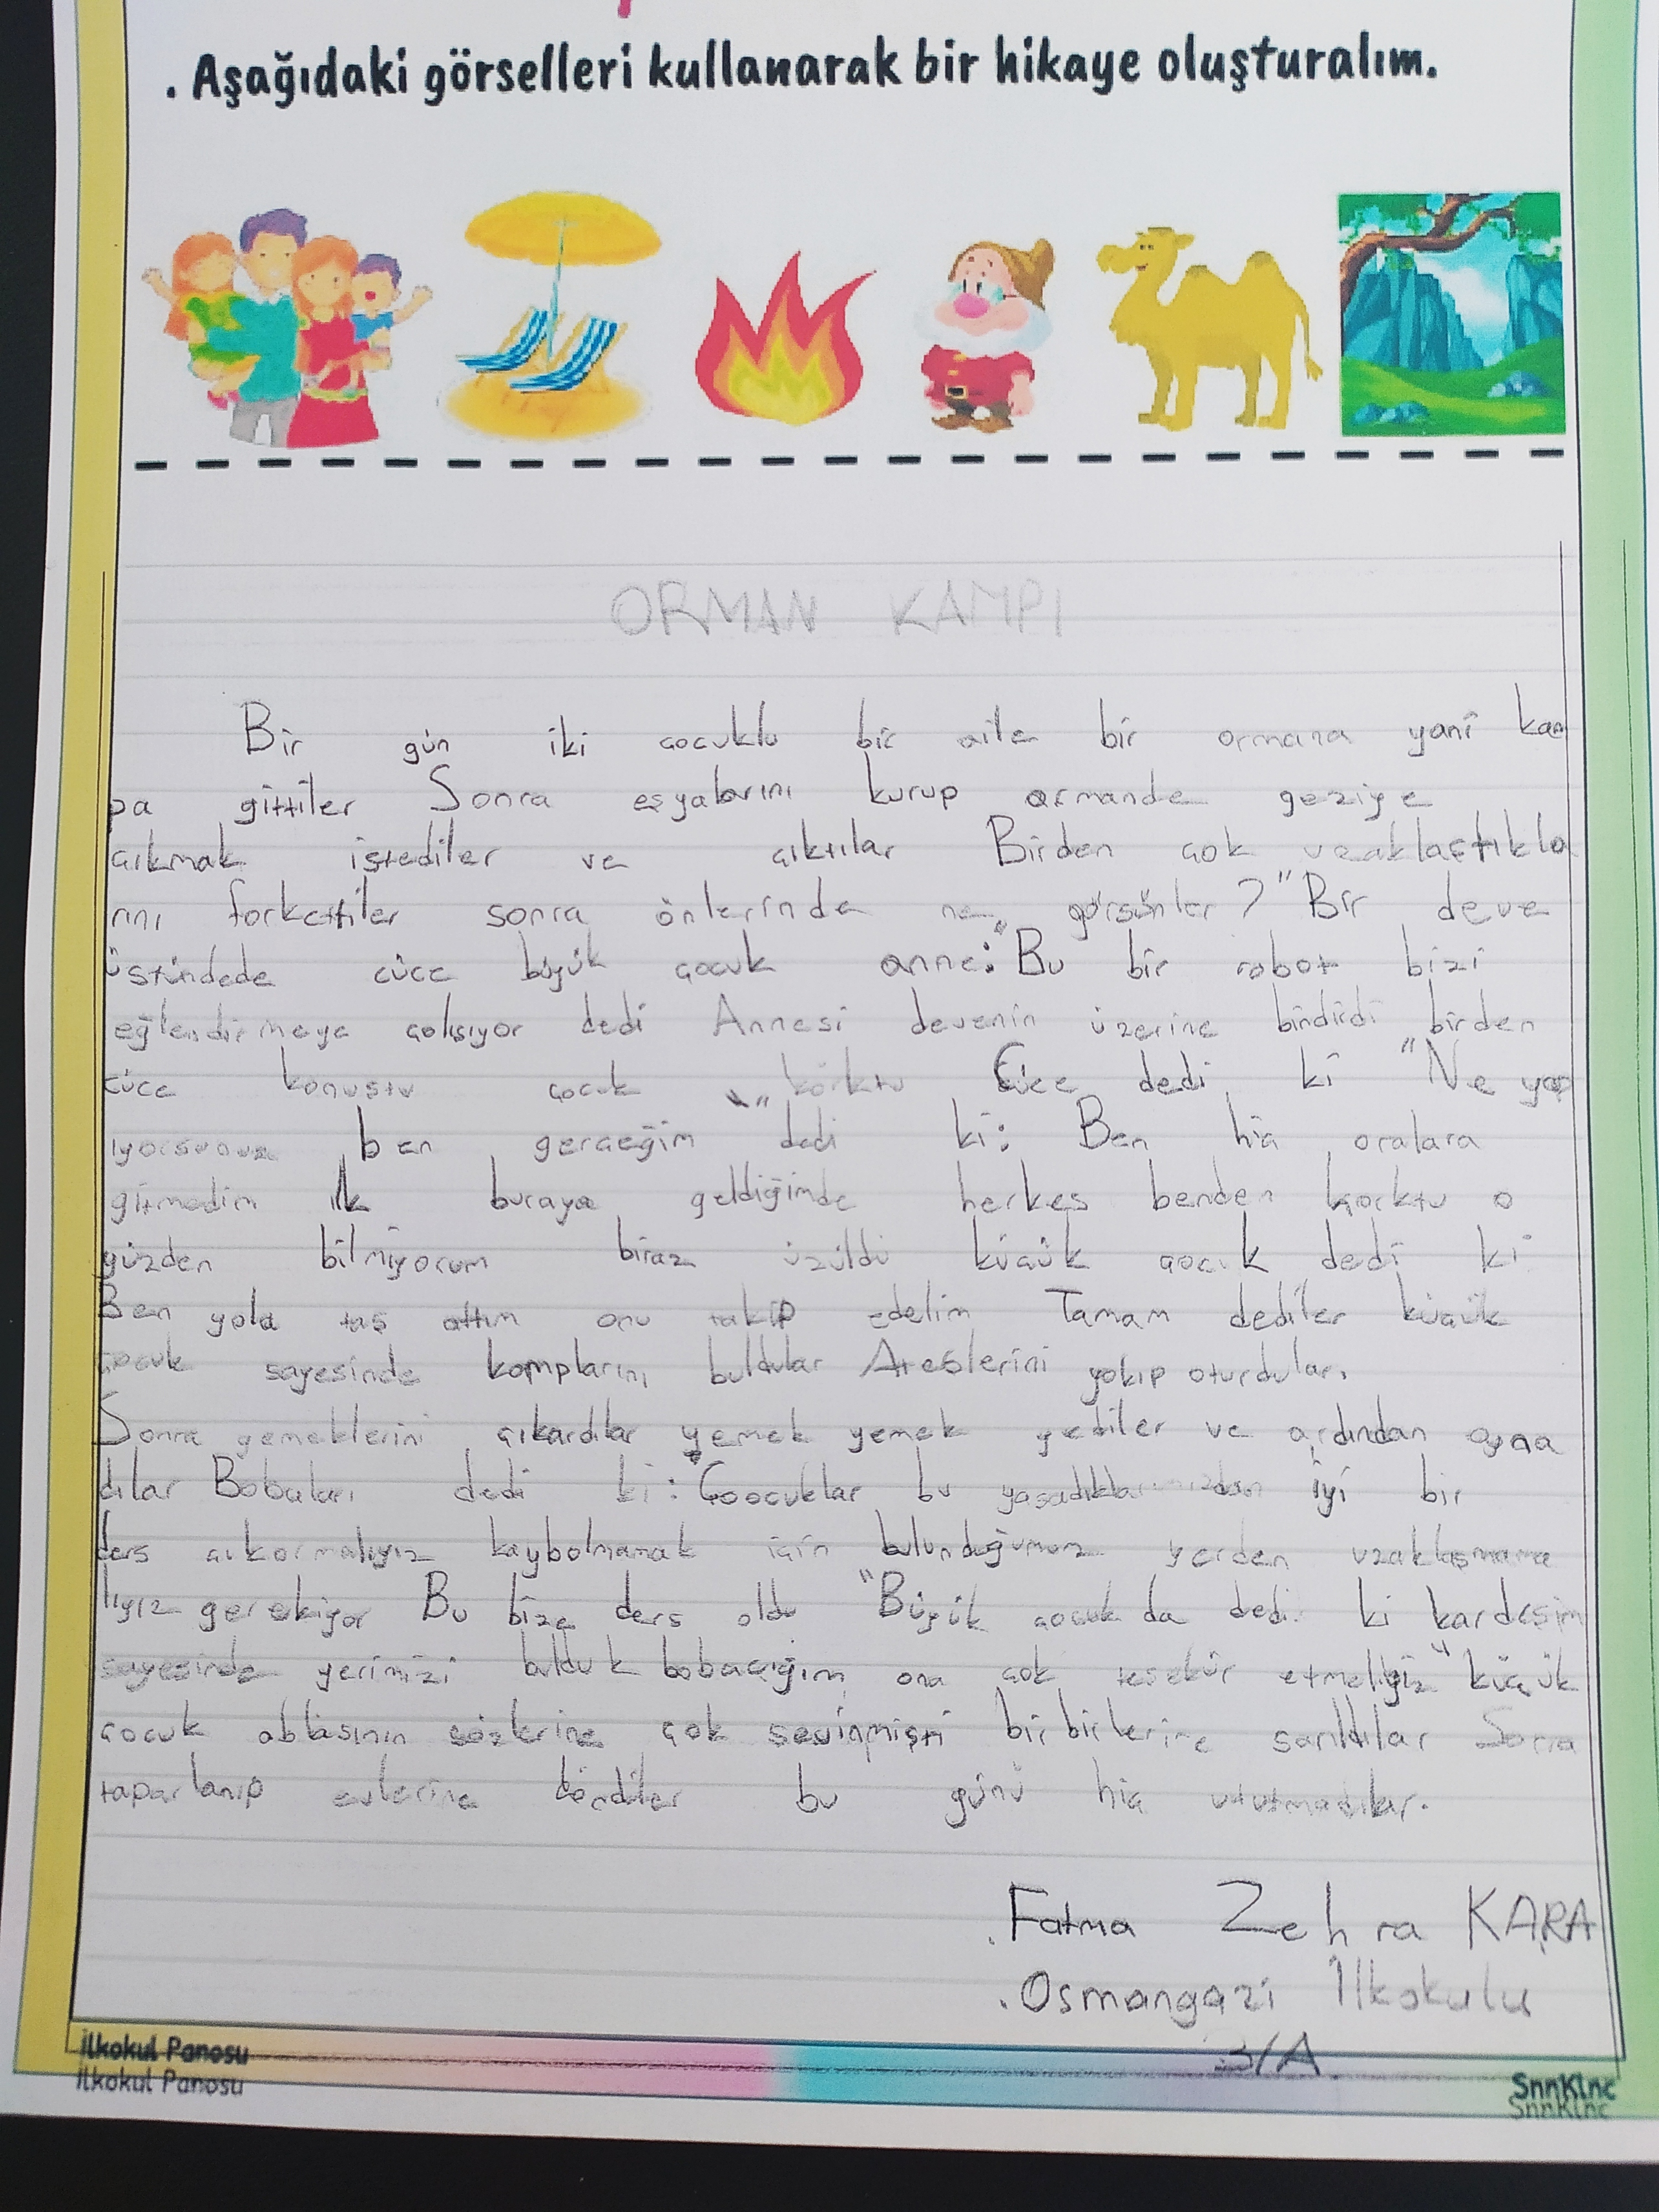 . Aşağıdaki görselleri kullanarak bir hikaye oluşturalım.
ORMAN KAMPI
Bir gün iki çocuklu bir aile bir ormana yani kam
pa gittiler Sonra eşyalarını kurup ormanda geziye
çıkmak istediler ve çıktılar Birden çok uzaklaştıkla
rını farkettiler sonra önlerinde ne görsünler? "Bir deve
üstündede cüce büyük çocuk anne:"Bu bir robot bizi
eğlendirmeye çalışıyor dedi Annesi devenin üzerine bindirdi birden
cüce konuştu çocuk korktu Cüce dedi ki "Ne yap
ıyorsunuz ben gerçeğim" dedi ki: Ben hiç oralara
gitmedim ilk buraya geldiğimde herkes benden korktu o
yüzden bilmiyorum biraz üzüldü küçük çocuk dedi ki
Ben yola taş attım onu takip edelim Tamam dediler küçük
çocuk sayesinde kamplarını buldular Ateşlerini yakıp oturdular.
Sonra yemeklerini çıkardılar yemek yemek yediler ve ardından oyna
dılar Babaları dedi ki:"Çoocuklar bu yaşadıklarımızdan iyi bir
ders çıkarmalıyız kaybolmamak için bulunduğumuz yerden uzaklaşmama
lıyız gerekiyor Bu bize ders oldu "Büyük çocuk da dedi ki kardeşim
sayesinde yerimizi bulduk babacığım ona çok teşekür etmeliyiz" küçük
çocuk ablasının sözlerine çok sevinmişti birbirlerine sarıldılar Sonra
taparlanıp evlerine döndüler bu günü hiç unutmadılar.
.Fatma Zehra KARA
.Osmangazi İlkokulu
3/A.
İlkokul Panosu
İlkokul Panosu
SnnKlnc
SnnKlnc